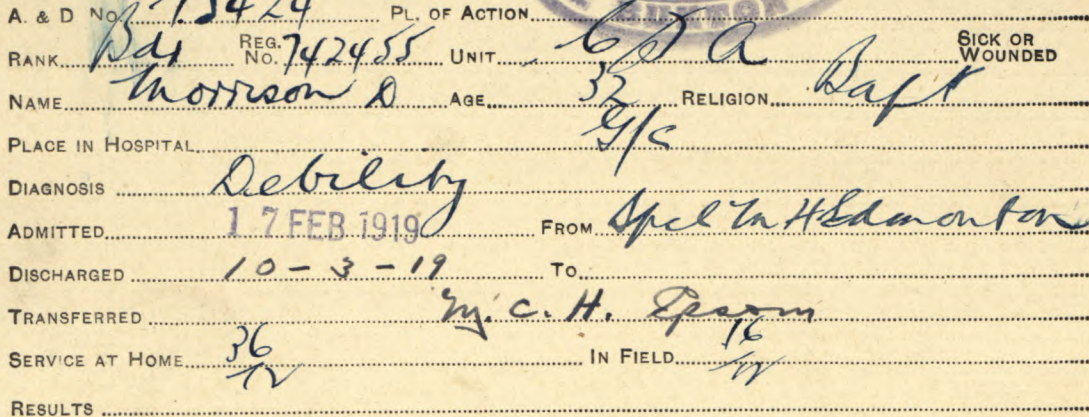 A. & D No. T.3424 PL. OF ACTION
RANK Bdr REG. No. 742455 UNIT 6 D A SICK OR WOUNDED
NAME Morrison D AGE 32 RELIGION Bapt
PLACE IN HOSPITAL G/c
DIAGNOSIS Debility
ADMITTED 17 FEB 1919 FROM Spcl M H Edmonton
DISCHARGED 10-3-19 TO
TRANSFERRED M. C. H. Epsom
SERVICE AT HOME 36/12 IN FIELD 16/12
RESULTS